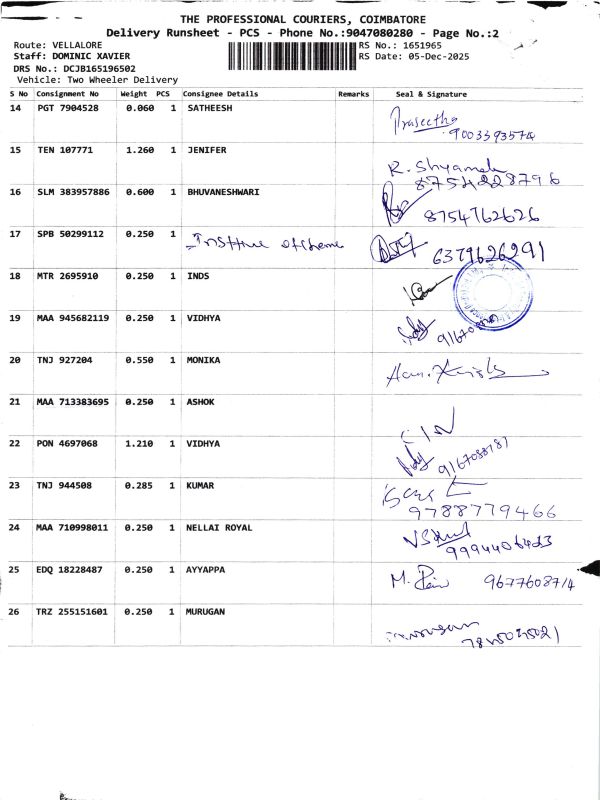 THE PROFESSIONAL COURIERS, COIMBATORE
Delivery Runsheet - PCS - Phone No.:9047080280 - Page No.:2
Route: VELLALORE
Staff: DOMINIC XAVIER
DRS No.: DCJB165196502
Vehicle: Two Wheeler Delivery
RS No.: 1651965
RS Date: 05-Dec-2025
S No Consignment No Weight PCS Consignee Details Remarks Seal & Signature
14 PGT 7904528 0.060 1 SATHEESH
9003393574
15 TEN 107771 1.260 1 JENIFER
R. Shyamala
8754228796
16 SLM 383957886 0.600 1 BHUVANESHWARI
8754762626
17 SPB 50299112 0.250 1
6379626291
18 MTR 2695910 0.250 1 INDS
19 MAA 945682119 0.250 1 VIDHYA
20 TNJ 927204 0.550 1 MONIKA
21 MAA 713383695 0.250 1 ASHOK
22 PON 4697068 1.210 1 VIDHYA
9167088787
23 TNJ 944508 0.285 1 KUMAR
9788779466
24 MAA 710998011 0.250 1 NELLAI ROYAL
25 EDQ 18228487 0.250 1 AYYAPPA
M. 9677608714
26 TRZ 255151601 0.250 1 MURUGAN
murugan